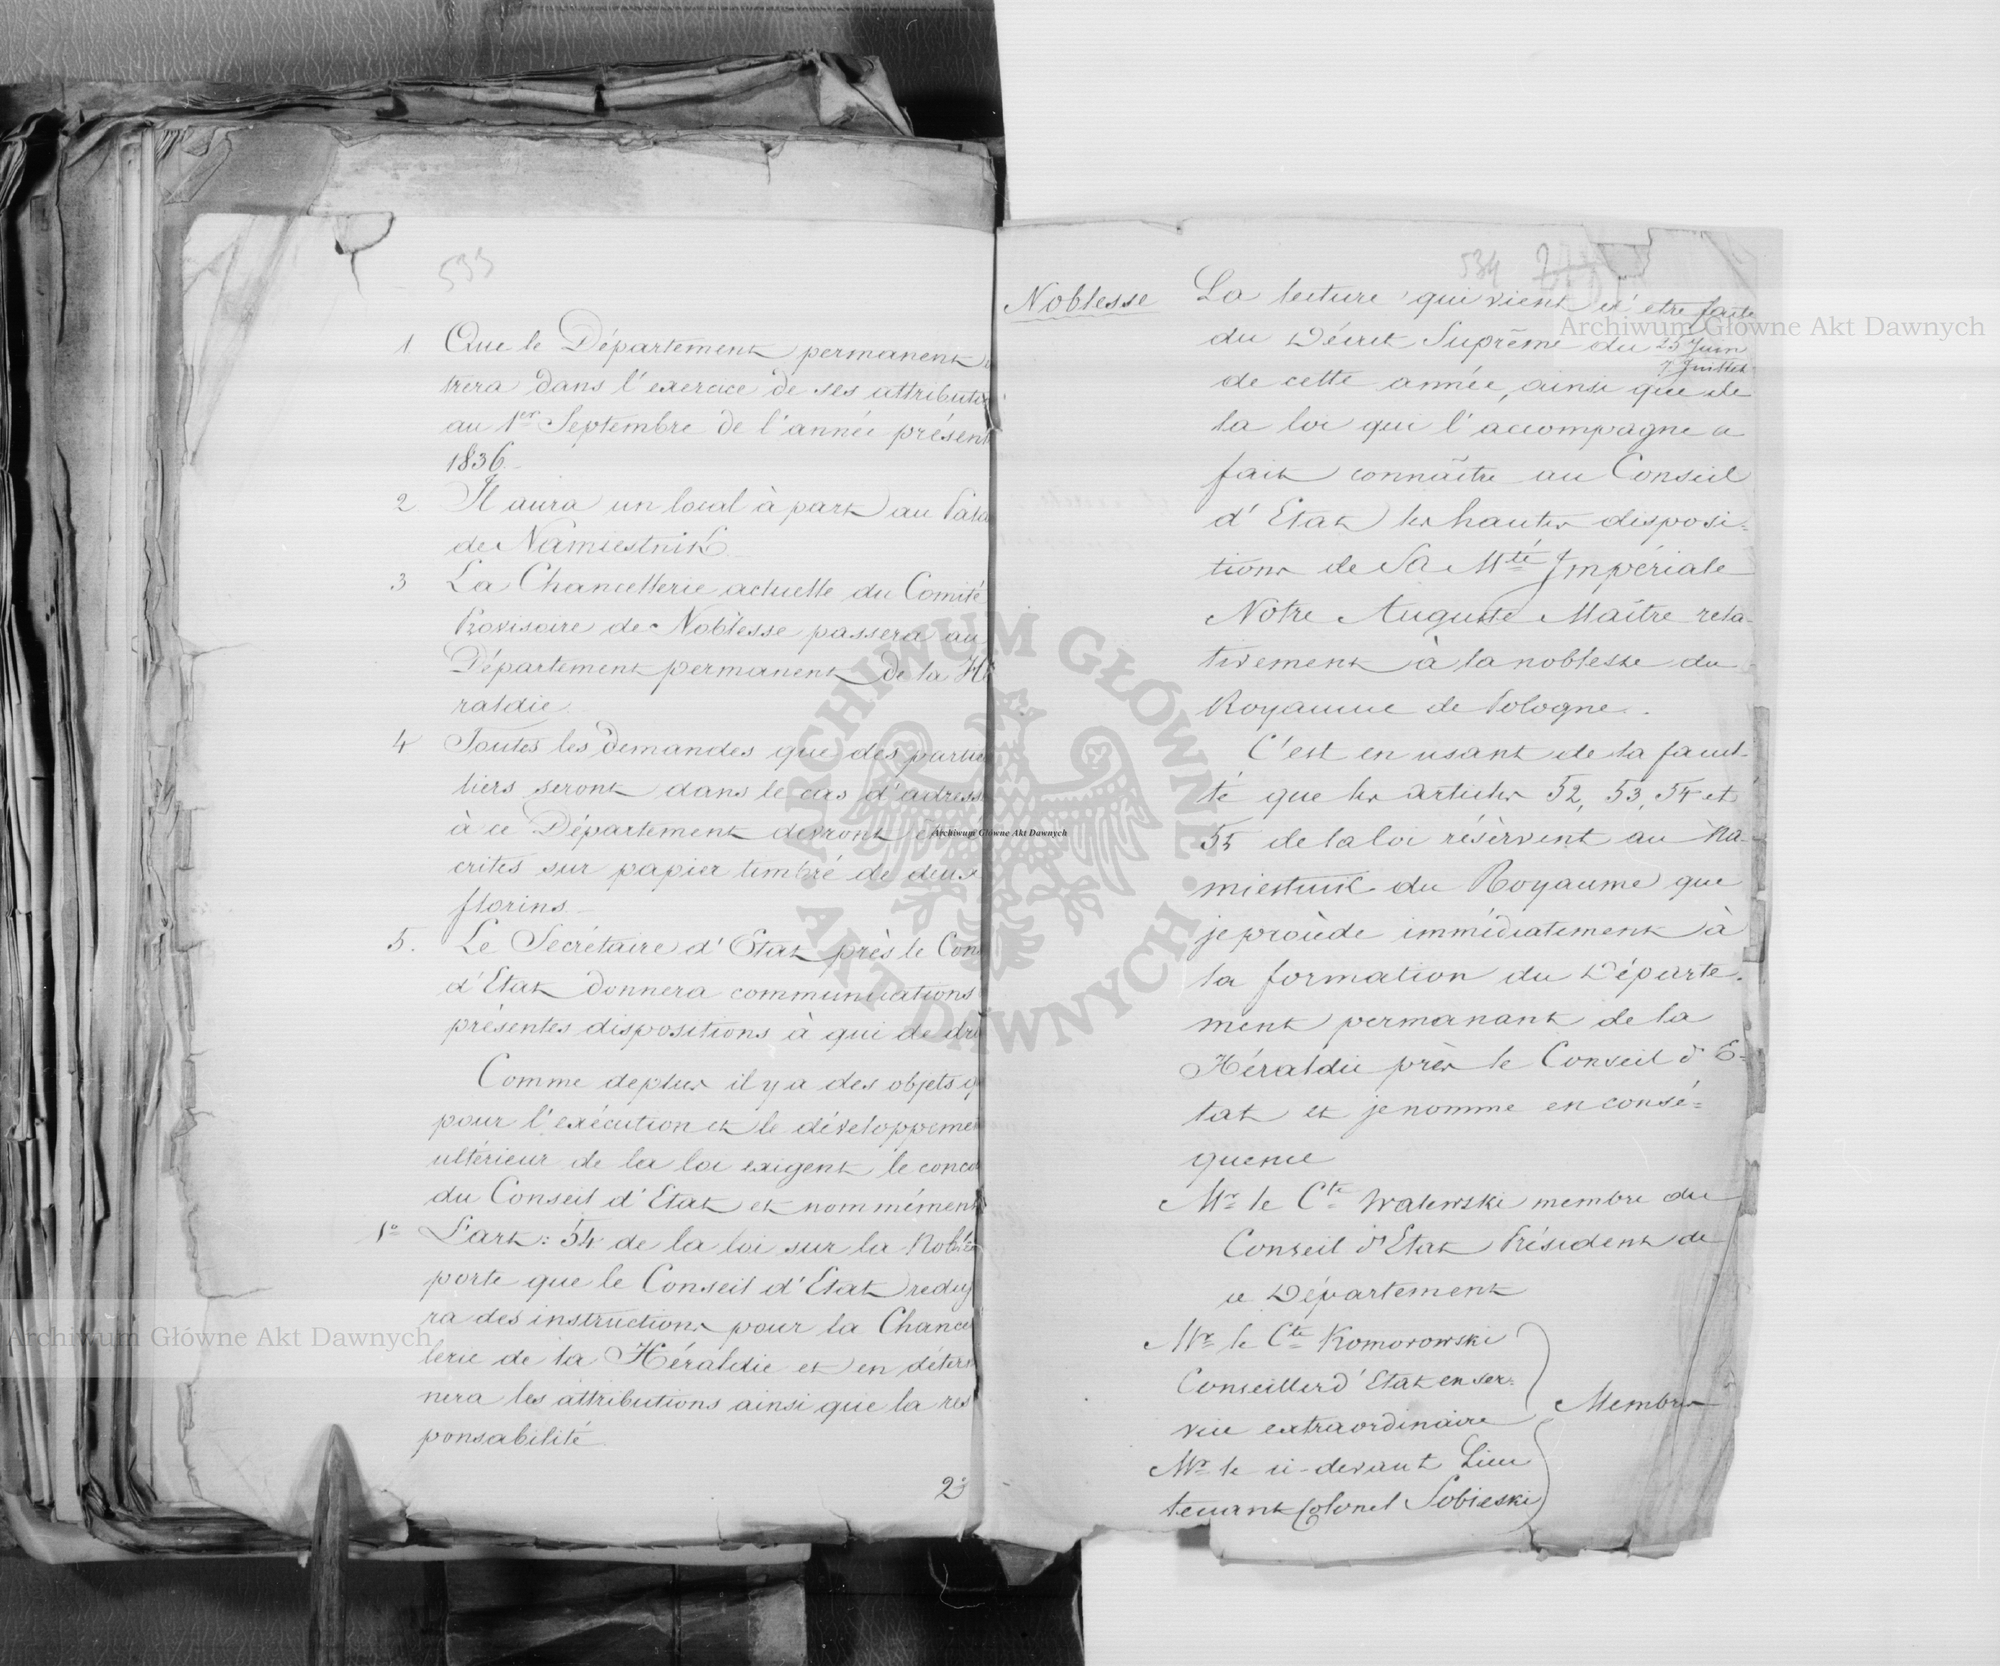 533
1 Que le Département permanent
trera dans l'exercice de ses attributi
au 1er Septembre de l'année présent
1836.
2 Il aura un local à part au Pala
de Namiestnik
3 La Chancellerie actuelle du Comité
Provisoire de Noblesse passera au
Département permanent de la Hé
raldie.
4 Toutes les demandes que des particu
liers seront dans le cas d'adress
à ce Département devront
crites sur papier timbré de deux
florins
5. Le Secrétaire d'Etat près le Cons
d'Etat donnera communications
présentes dispositions à qui de dro
Comme deplus il y a des objets q
pour l'exécution et le développemen
ultérieur de la loi exigent le conco
du Conseil d'Etat et nommément
1o L'art: 54 de la loi sur la Nobles
porte que le Conseil d'Etat redig
ra des instructions pour la Chancel
lerie de la Héraldie et en déterm
nera les attributions ainsi que la res
ponsabilité
23
534
Noblesse
La lecture qui vient d'etre faite
du Décret Suprême du 25 Juin
7 Juillet
de cette année, ainsi que de
la loi qui l'accompagne a
fait connaître au Conseil
d'Etat les hautes disposi-
tions de Sa Mté Impériale
Notre Auguste Maître rela-
tivement à la noblesse du
Royaume de Pologne.
C'est en usant de la facul-
té que les articles 52, 53, 54 et
55 de la loi réservent au Na-
miestnik du Royaume que
je procède immédiatement à
la formation du Départe-
ment permanant de la
Héraldie près le Conseil d'E-
tat et je nomme en consé-
quence
Mr le Cte Walewski membre du
Conseil d'Etat Président de
ce Département
Mr le Cte Komorowski
Conseiller d'Etat en ser-
vice extraordinaire
Membres
Mr le ci-devant Lieu
tenant Colonel Sobieski
Archiwum Główne Akt Dawnych
Archiwum Główne Akt Dawnych
Archiwum Główne Akt Dawnych
ARCHIWUM GŁÓWNE AKT DAWNYCH